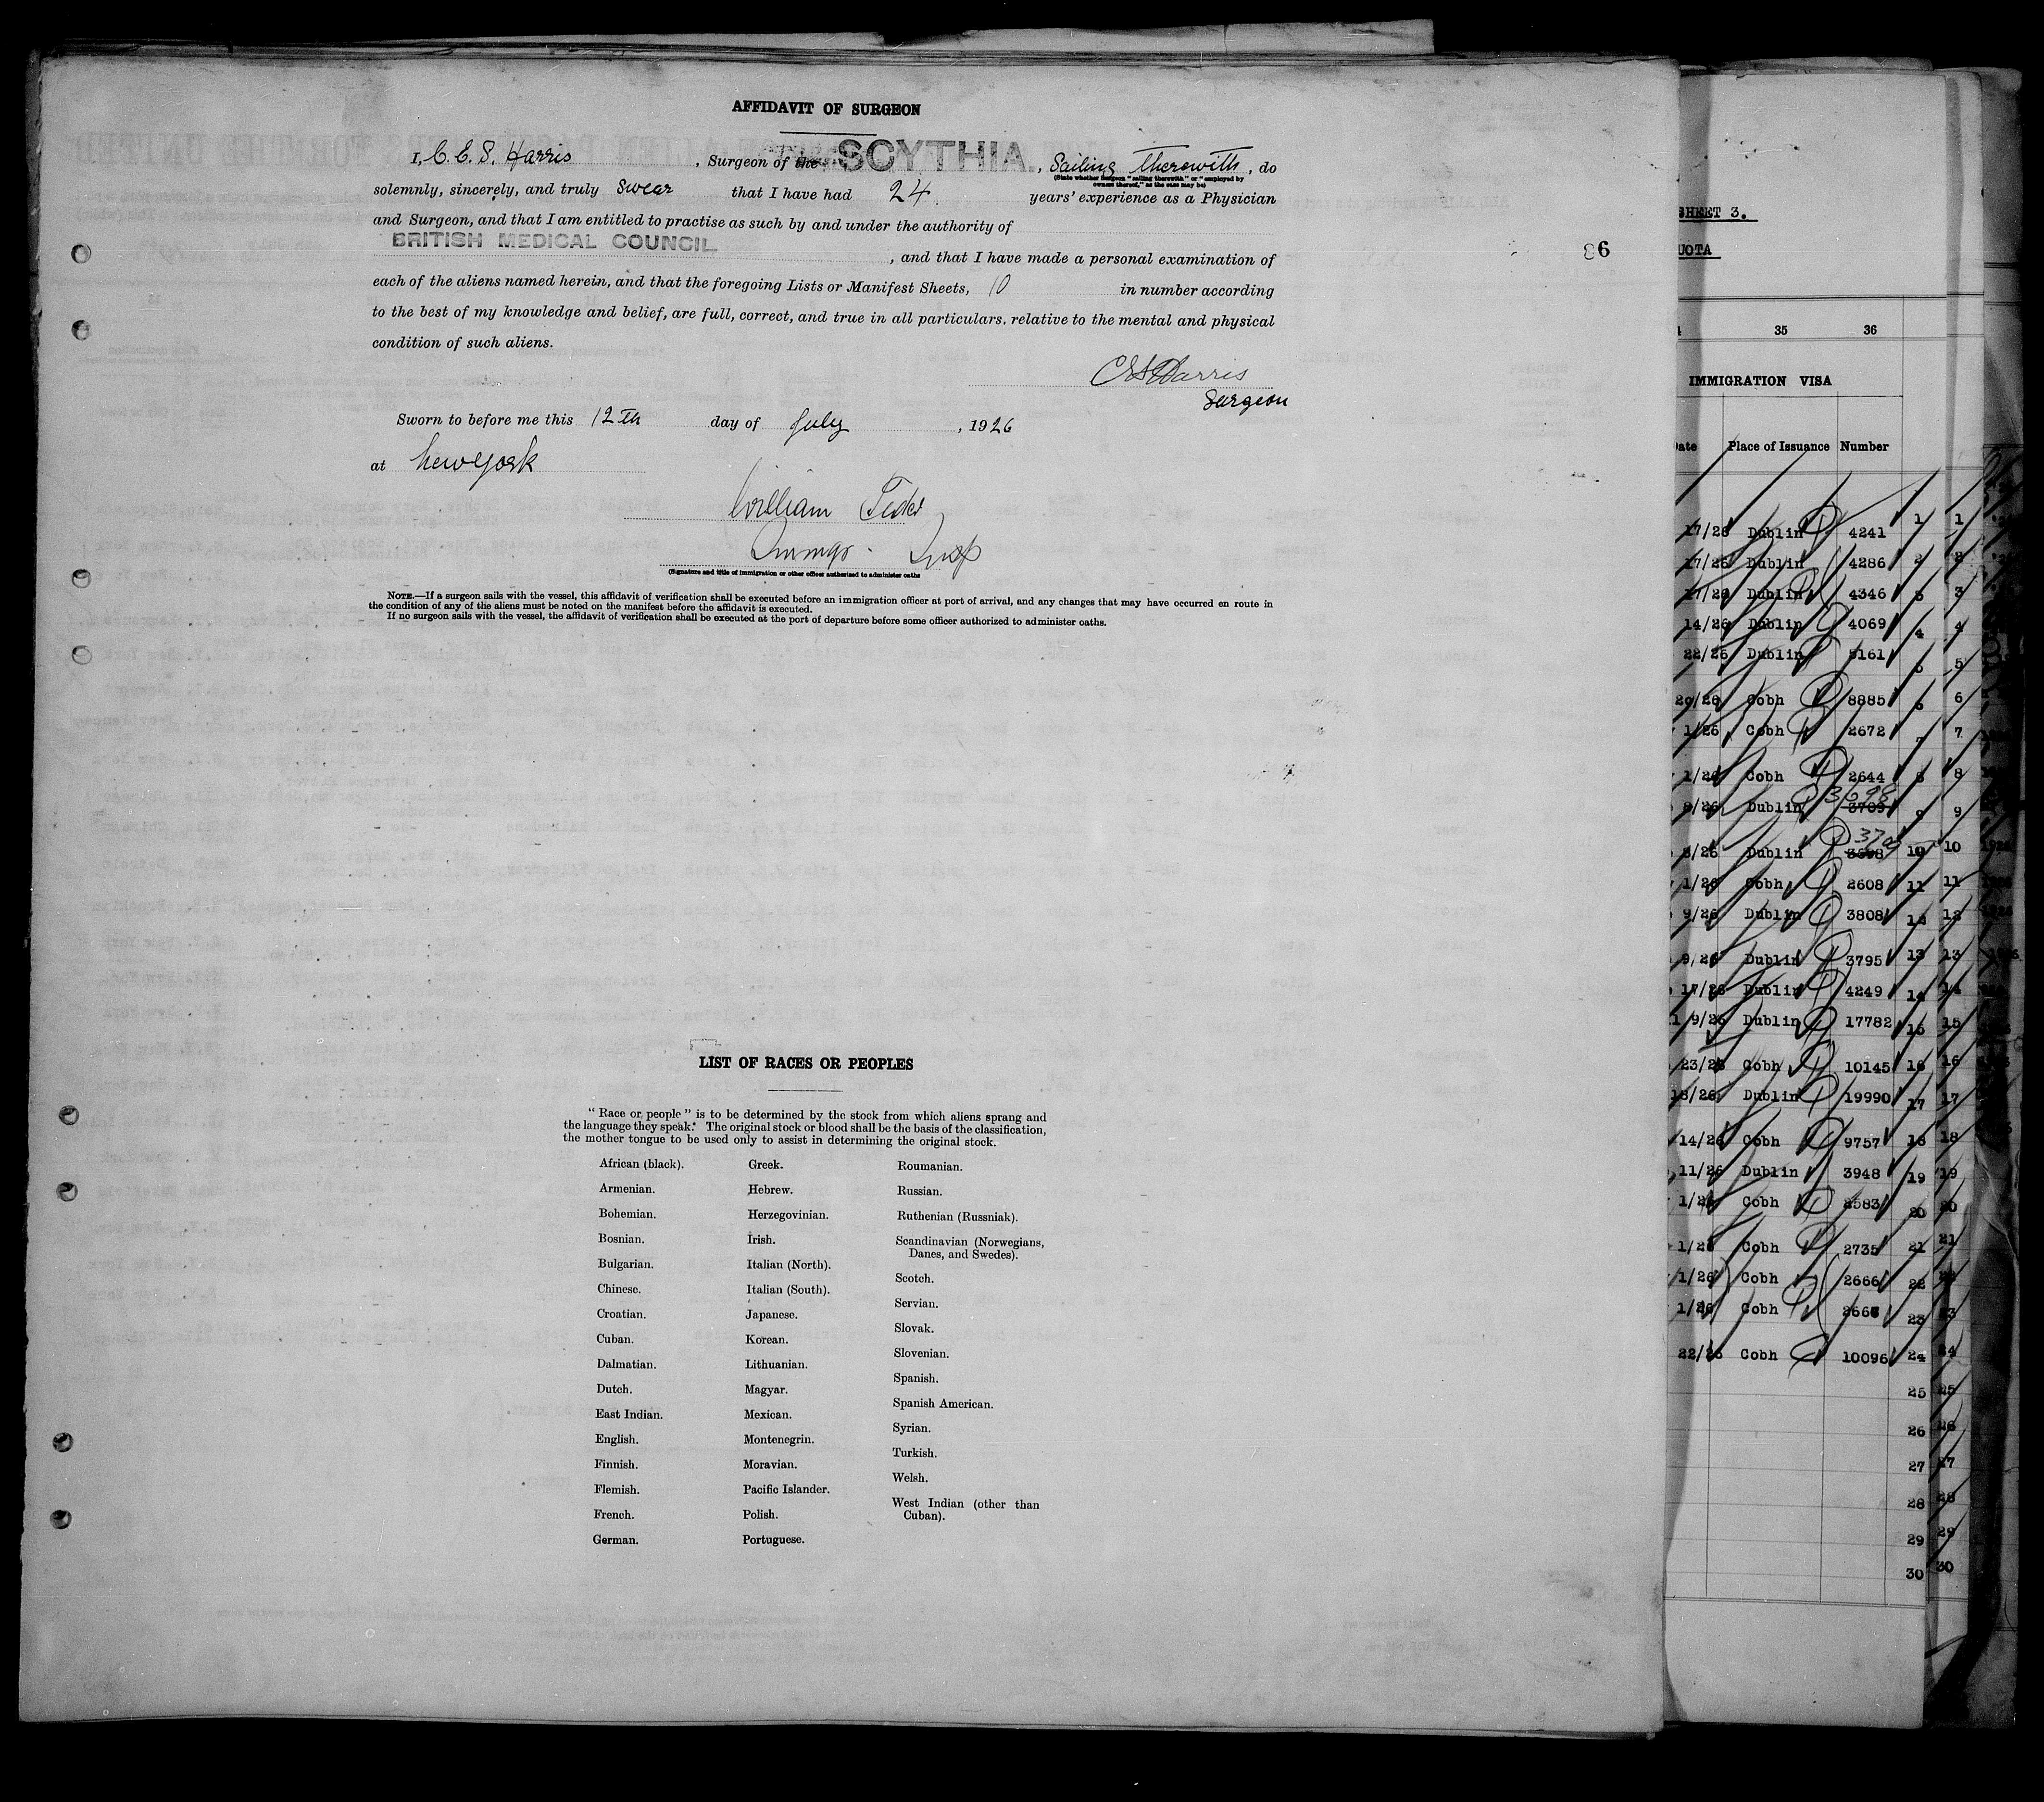 AFFIDAVIT OF SURGEON
I, C. E. S. Harris, Surgeon of the SCYTHIA., Sailing therewith, do
(State whether Surgeon "sailing therewith" or "employed by
owners thereof," as the case may be)
solemnly, sincerely, and truly swear that I have had 24. years' experience as a Physician
and Surgeon, and that I am entitled to practise as such by and under the authority of
BRITISH MEDICAL COUNCIL
, and that I have made a personal examination of
each of the aliens named herein, and that the foregoing Lists or Manifest Sheets, 10 in number according
to the best of my knowledge and belief, are full, correct, and true in all particulars, relative to the mental and physical
condition of such aliens.
CES Harris
Surgeon
Sworn to before me this 12th day of July, 1926
at New York
William
Immgr. Insp
(Signature and title of immigration or other officer authorized to administer oaths
NOTE.—If a surgeon sails with the vessel, this affidavit of verification shall be executed before an immigration officer at port of arrival, and any changes that may have occurred en route in
the condition of any of the aliens must be noted on the manifest before the affidavit is executed.
If no surgeon sails with the vessel, the affidavit of verification shall be executed at the port of departure before some officer authorized to administer oaths.
LIST OF RACES OR PEOPLES
"Race or people" is to be determined by the stock from which aliens sprang and
the language they speak. The original stock or blood shall be the basis of the classification,
the mother tongue to be used only to assist in determining the original stock.
African (black).
Armenian.
Bohemian.
Bosnian.
Bulgarian.
Chinese.
Croatian.
Cuban.
Dalmatian.
Dutch.
East Indian.
English.
Finnish.
Flemish.
French.
German.
Greek.
Hebrew.
Herzegovinian.
Irish.
Italian (North).
Italian (South).
Japanese.
Korean.
Lithuanian.
Magyar.
Mexican.
Montenegrin.
Moravian.
Pacific Islander.
Polish.
Portuguese.
Roumanian.
Russian.
Ruthenian (Russniak).
Scandinavian (Norwegians,
Danes, and Swedes).
Scotch.
Servian.
Slovak.
Slovenian.
Spanish.
Spanish American.
Syrian.
Turkish.
Welsh.
West Indian (other than
Cuban).
86
SHEET 3.
UOTA
35 36
IMMIGRATION VISA
Date Place of Issuance Number
17/26 Dublin 4241 1 1
17/26 Dublin 4286 2 2
17/26 Dublin 4346 3 3
14/26 Dublin 4069 4 4
22/26 Dublin 5161 5 5
20/26 Cobh 8885 6 6
1/26 Cobh 2672 7 7
1/26 Cobh 2644 8 8
8/26 Dublin 3698 3709 9 9
8/26 Dublin 3709 3698 10 10
1/26 Cobh 2608 11 11
9/26 Dublin 3808 12 12
9/26 Dublin 3795 13 13
17/26 Dublin 4249 14 14
9/26 Dublin 17782 15 15
23/26 Cobh 10145 16 16
18/26 Dublin 19990 17 17
14/26 Cobh 9757 18 18
11/26 Dublin 3948 19 19
1/26 Cobh 2583 20 20
1/26 Cobh 2735 21 21
1/26 Cobh 2666 22 22
1/26 Cobh 23 23
22/26 Cobh 10096 24 24
25 25
26 26
27 27
28 28
29 29
30 30